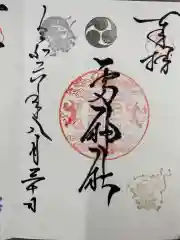 奉拝
雷神社
令和二年八月三十日